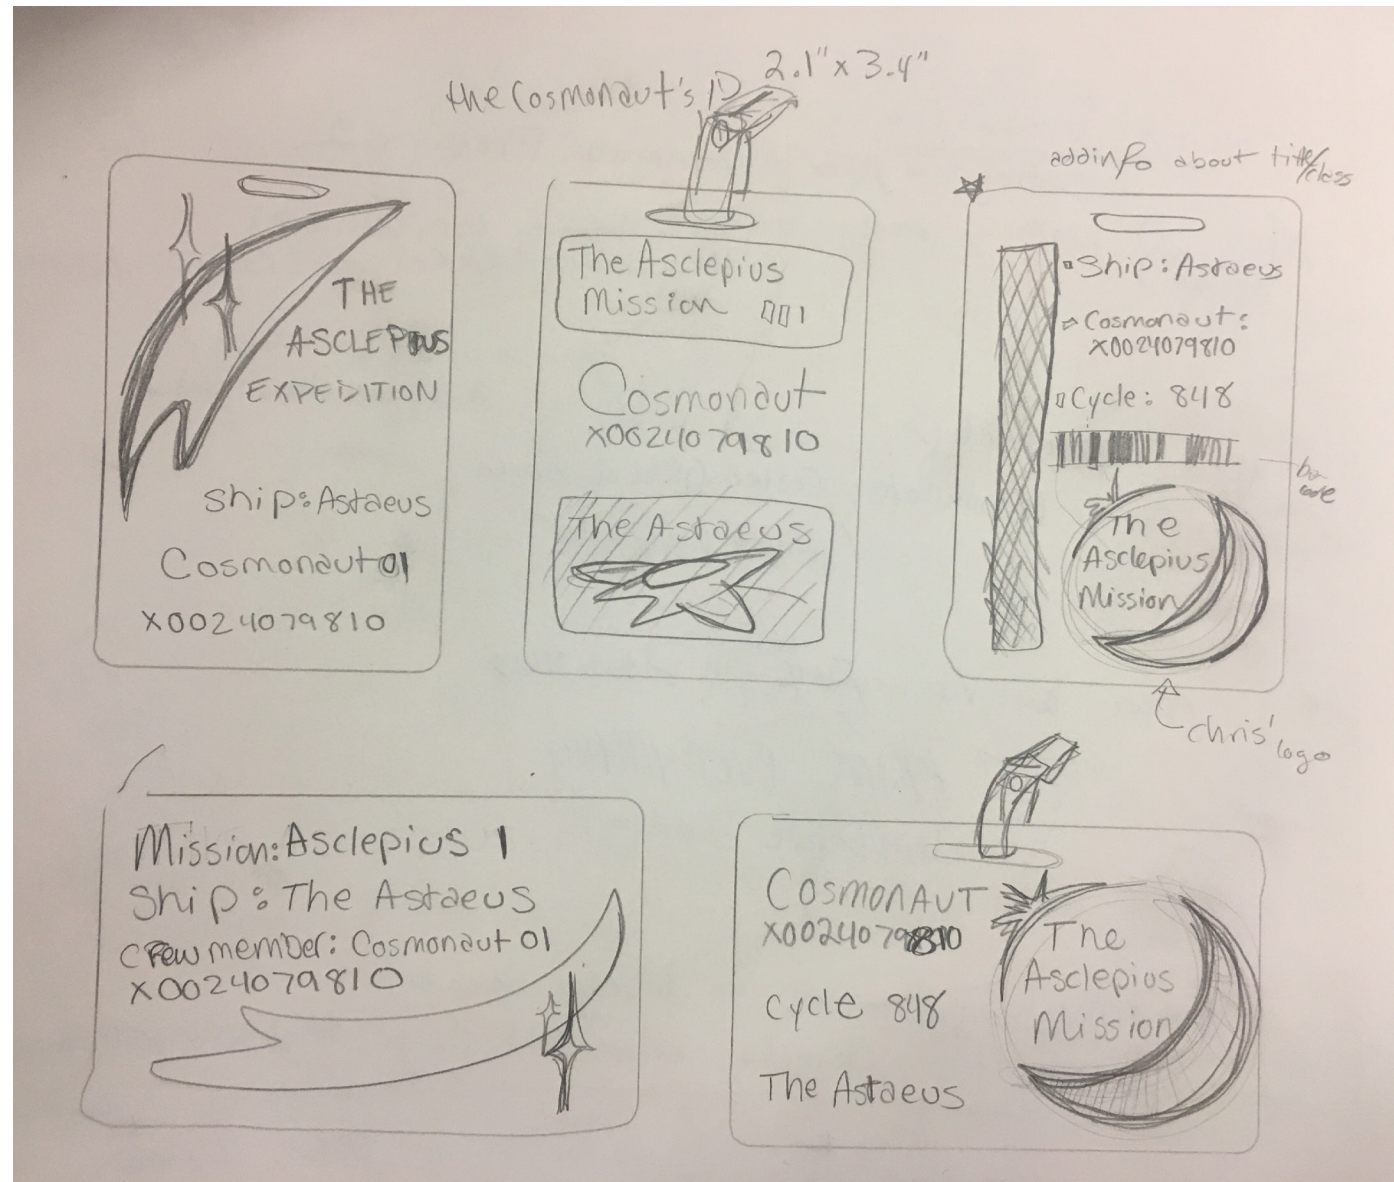 the Cosmonaut's ID
2.1" x 3.4"
THE
ASCLEPIUS
EXPEDITION
Ship: Astaeus
Cosmonaut 01
X0024079810
The Asclepius
Mission 001
Cosmonaut
X0024079810
The Astaeus
add info about title/
class
Ship: Astaeus
Cosmonaut:
X0024079810
Cycle: 848
bar
code
The
Asclepius
Mission
Chris'
logo
Mission: Asclepius 1
Ship: The Astaeus
crew member: Cosmonaut 01
X0024079810
COSMONAUT
X0024079810
Cycle 848
The Astaeus
The
Asclepius
Mission